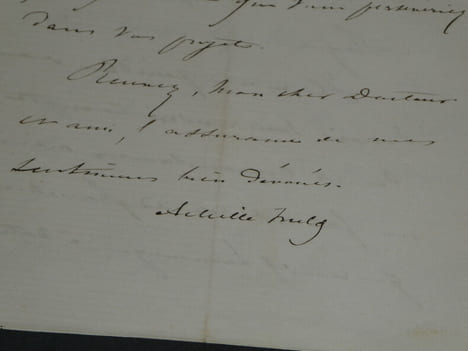 que vous persévériez
dans vos projets.
Recevez, Mon cher Docteur
et ami, l'assurance de mes
sentiments bien dévoués.
Achille Fould